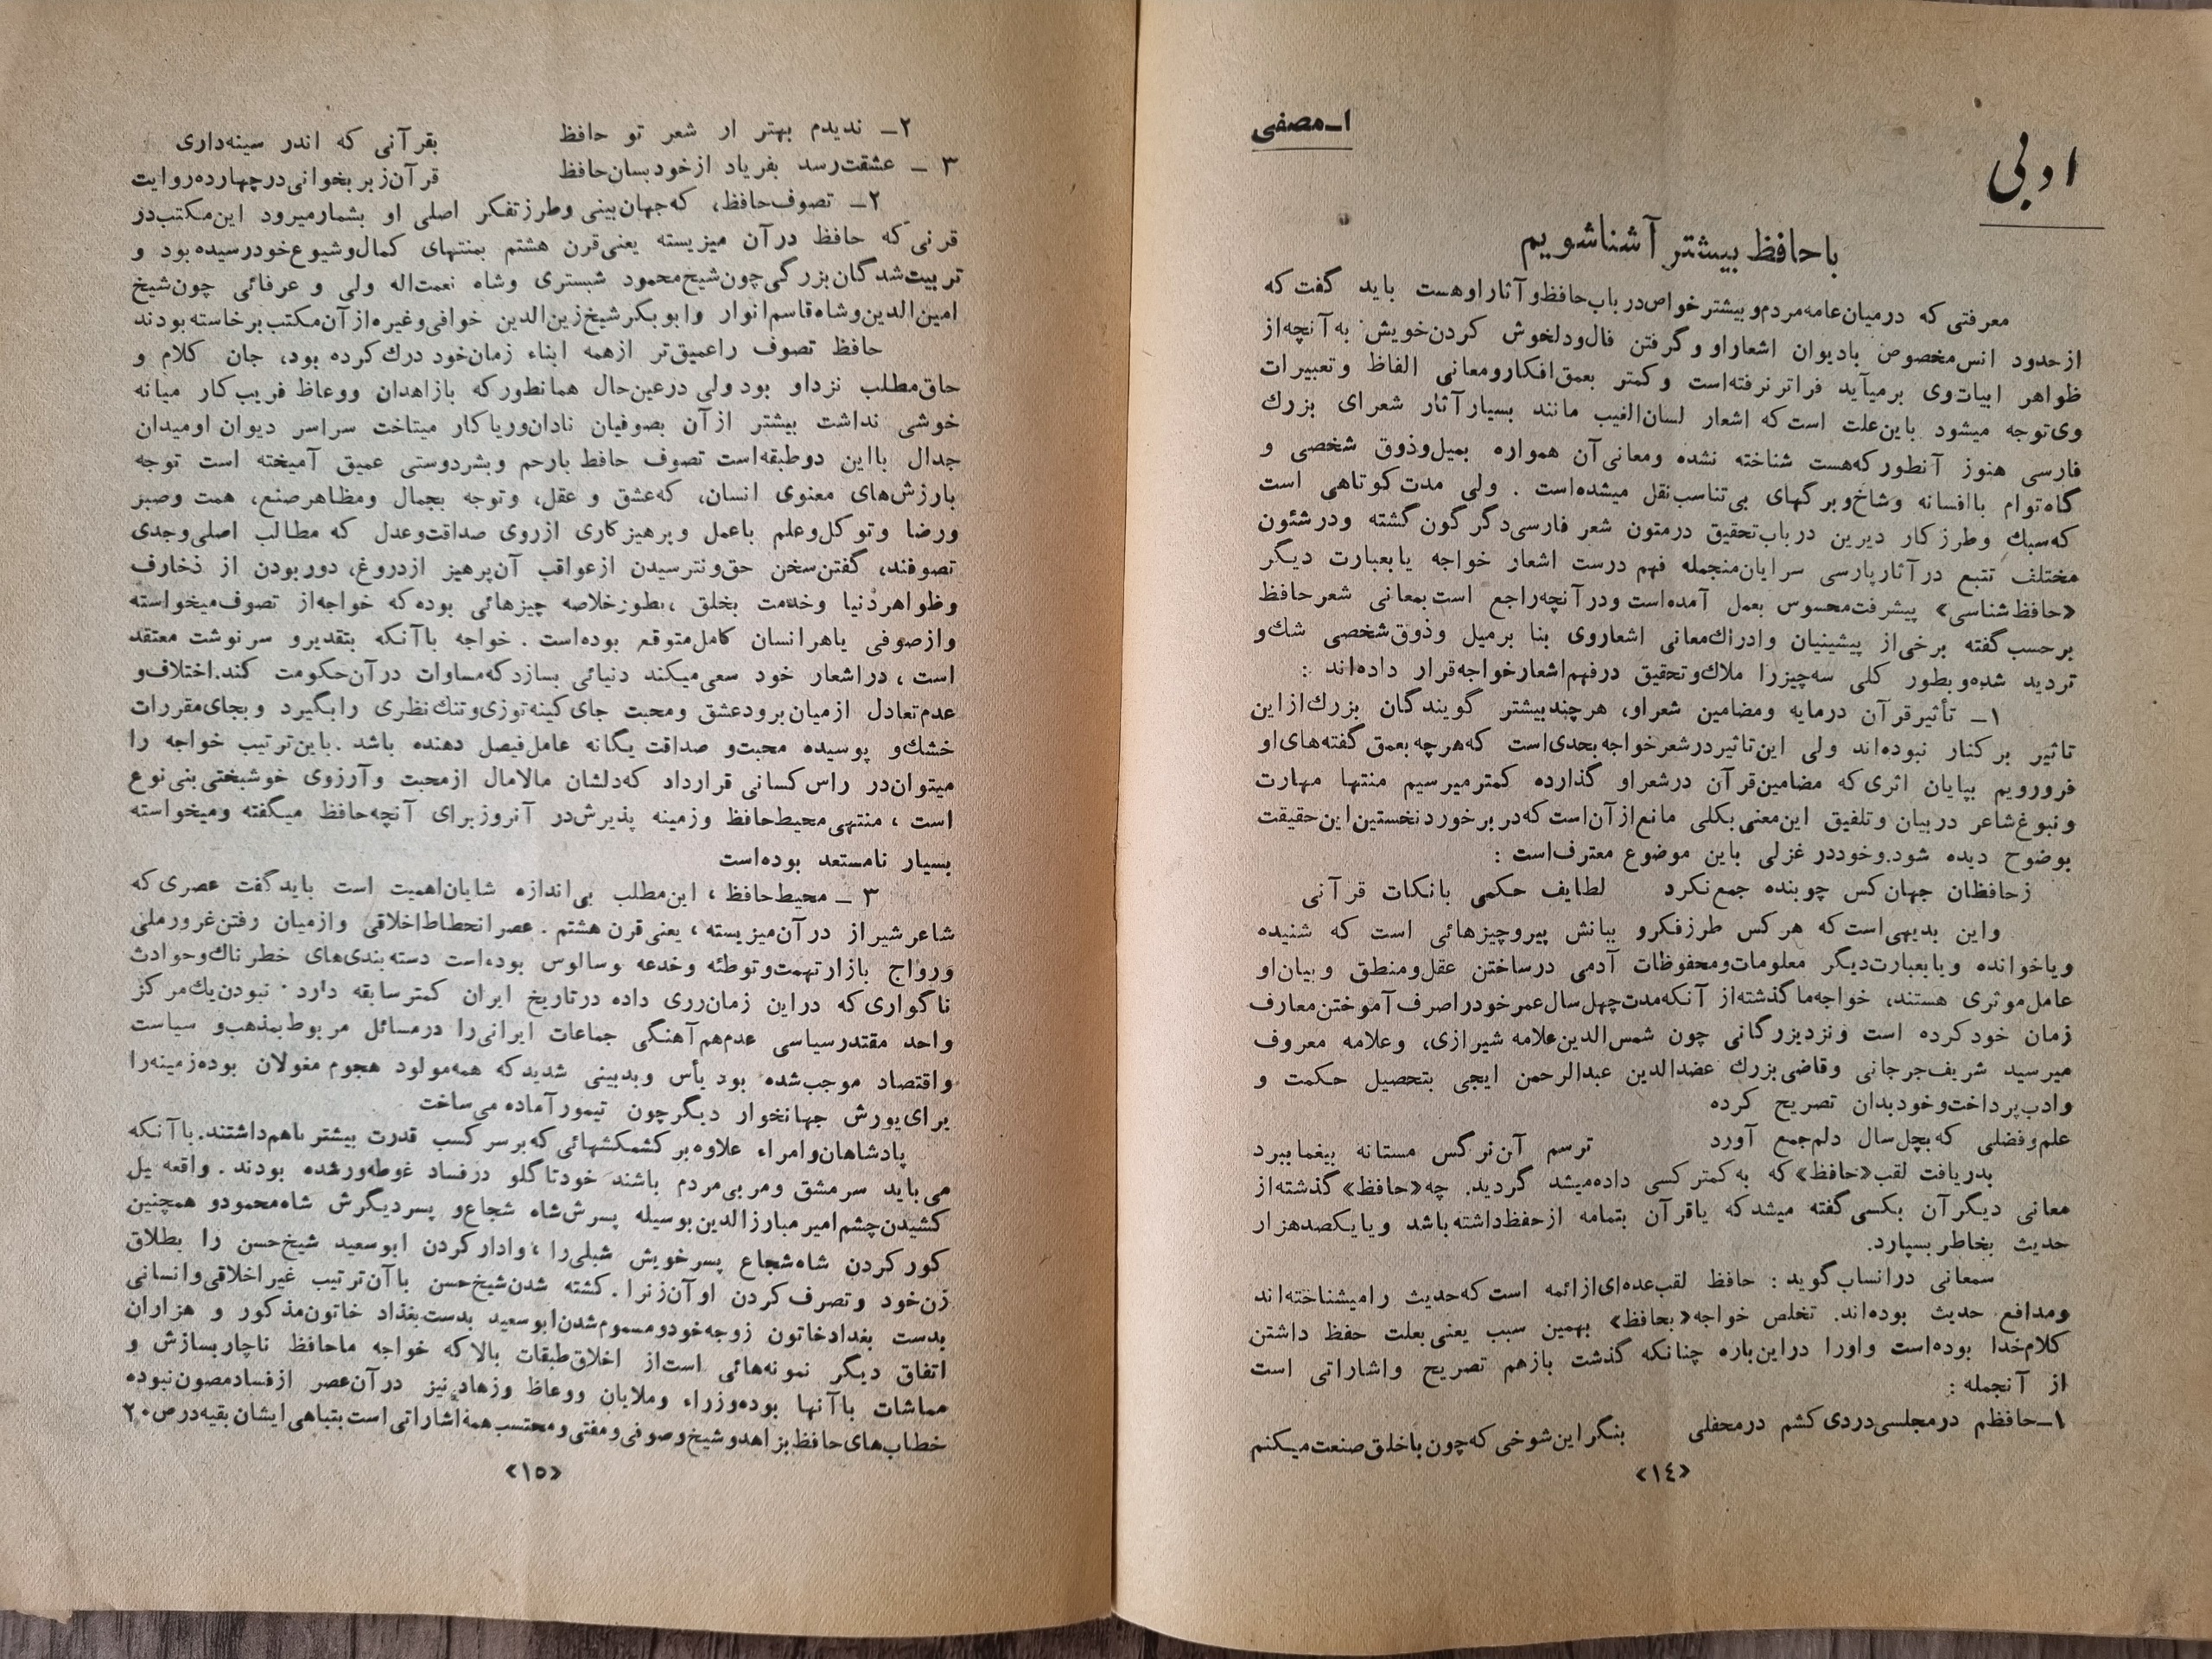 ادبی
۱ـ مصفی
با حافظ بیشتر آشنا شویم
معرفتی که درمیان عامه مردم و بیشتر خواص در باب حافظ و آثار او هست باید گفت که
از حدود انس مخصوص با دیوان اشعار او و گرفتن فال و دلخوش کردن خویش به آنچه از
ظواهر ابیات وی برمیآید فراتر نرفته است و کمتر بعمق افکار و معانی الفاظ و تعبیرات
وی توجه میشود باین علت است که اشعار لسان الغیب مانند بسیار آثار شعرای بزرك
فارسی هنوز آنطور که هست شناخته نشده و معانی آن همواره بمیل و ذوق شخصی و
گاه توام با افسانه و شاخ و برگهای بی تناسب نقل میشده است . ولی مدت کوتاهی است
که سبك و طرز کار دیرین در باب تحقیق درمتون شعر فارسی دگرگون گشته و در شئون
مختلف تتبع در آثار پارسی سرایان منجمله فهم درست اشعار خواجه یا بعبارت دیگر
«حافظ شناسی» پیشرفت محسوس بعمل آمده است و در آنچه راجع است بمعانی شعر حافظ
برحسب گفته برخی از پیشینیان و ادراك معانی اشعار وی بنا برمیل و ذوق شخصی شك و
تردید شده و بطور کلی سه چیز را ملاك و تحقیق درفهم اشعار خواجه قرار داده اند :
۱ـ تأثیر قرآن درمایه و مضامین شعر او، هرچند بیشتر گویندگان بزرك از این
تاثیر برکنار نبوده اند ولی این تاثیر در شعر خواجه بحدی است که هرچه بعمق گفته های او
فرو رویم بپایان اثری که مضامین قرآن در شعر او گذارده کمتر میرسیم منتها مهارت
و نبوغ شاعر در بیان و تلفیق این معنی بکلی مانع از آن است که در برخورد نخستین این حقیقت
بوضوح دیده شود. و خود در غزلی باین موضوع معترف است :
ز حافظان جهان کس چو بنده جمع نکرد لطایف حکمی با نکات قرآنی
و این بدیهی است که هرکس طرز فکر و بیانش پیرو چیزهائی است که شنیده
و یا خوانده و یا بعبارت دیگر معلومات و محفوظات آدمی درساختن عقل و منطق و بیان او
عامل موثری هستند، خواجه ما گذشته از آنکه مدت چهل سال عمر خود را صرف آموختن معارف
زمان خود کرده است و نزد بزرگانی چون شمس الدین علامه شیرازی، و علامه معروف
میر سید شریف جرجانی و قاضی بزرك عضدالدین عبدالرحمن ایجی بتحصیل حکمت و
و ادب پرداخت و خود بدان تصریح کرده
علم و فضلی که بچل سال دلم جمع آورد ترسم آن نرگس مستانه بیغما ببرد
بدریافت لقب «حافظ» که به کمتر کسی داده میشد گردید. چه «حافظ» گذشته از
معانی دیگر آن بکسی گفته میشد که یا قرآن بتمامه از حفظ داشته باشد و یا یکصد هزار
حدیث بخاطر بسپارد.
سمعانی در انساب گوید : حافظ لقب عده ای از ائمه است که حدیث را میشناخته اند
و مدافع حدیث بوده اند. تخلص خواجه «بحافظ» بهمین سبب یعنی بعلت حفظ داشتن
کلام خدا بوده است و او را در این باره چنانکه گذشت بازهم تصریح و اشاراتی است
از آنجمله :
۱ـ حافظم در مجلسی دردی کشم در محفلی بنگر این شوخی که چون با خلق صنعت میکنم
«۱٤»
۲ـ ندیدم بهتر از شعر تو حافظ بقرآنی که اندر سینه داری
۳ ـ عشقت رسد بفریاد ار خود بسان حافظ قرآن ز بر بخوانی در چهارده روایت
۲ـ تصوف حافظ، که جهان بینی و طرز تفکر اصلی او بشمار میرود این مکتب در
قرنی که حافظ در آن میزیسته یعنی قرن هشتم بمنتهای کمال و شیوع خود رسیده بود و
تربیت شدگان بزرگی چون شیخ محمود شبستری و شاه نعمت اله ولی و عرفائی چون شیخ
امین الدین و شاه قاسم انوار و ابوبکر شیخ زین الدین خوافی و غیره از آن مکتب برخاسته بودند
حافظ تصوف را عمیق تر از همه ابناء زمان خود درك کرده بود، جان کلام و
حاق مطلب نزد او بود ولی درعین حال همانطور که با زاهدان و وعاظ فریب کار میانه
خوشی نداشت بیشتر از آن بصوفیان نادان و ریاکار میتاخت سراسر دیوان او میدان
جدال با این دو طبقه است تصوف حافظ با رحم و بشردوستی عمیق آمیخته است توجه
بارزش های معنوی انسان، که عشق و عقل، و توجه بجمال و مظاهر صنع، همت و صبر
و رضا و توکل و علم با عمل و پرهیزکاری از روی صداقت و عدل که مطالب اصلی و جدی
تصوفند، گفتن سخن حق و نترسیدن از عواقب آن پرهیز از دروغ، دور بودن از ذخارف
و ظواهر دنیا و خدمت بخلق ، بطور خلاصه چیزهائی بوده که خواجه از تصوف میخواسته
و از صوفی یا هر انسان کامل متوقع بوده است . خواجه با آنکه بتقدیر و سرنوشت معتقد
است ، در اشعار خود سعی میکند دنیائی بسازد که مساوات در آن حکومت کند. اختلاف و
عدم تعادل ازمیان برود عشق و محبت جای کینه توزی و تنك نظری را بگیرد و بجای مقررات
خشك و پوسیده محبت و صداقت یگانه عامل فیصل دهنده باشد . باین ترتیب خواجه را
میتوان در راس کسانی قرار داد که دلشان مالامال از محبت و آرزوی خوشبختی بنی نوع
است ، منتهی محیط حافظ و زمینه پذیرش در آنروز برای آنچه حافظ میگفته و میخواسته
بسیار نامستعد بوده است
۳ ـ محیط حافظ ، این مطلب بی اندازه شایان اهمیت است باید گفت عصری که
شاعر شیراز در آن میزیسته ، یعنی قرن هشتم . عصر انحطاط اخلاقی و ازمیان رفتن غرور ملی
و رواج بازار تهمت و توطئه و خدعه و سالوس بوده است دسته بندی های خطرناك و حوادث
ناگواری که در این زمان رری داده در تاریخ ایران کمتر سابقه دارد . نبودن یك مرکز
واحد مقتدر سیاسی عدم هم آهنگی جماعات ایرانی را در مسائل مربوط بمذهب و سیاست
و اقتصاد موجب شده بود یأس و بدبینی شدید که همه مولود هجوم مغولان بوده زمینه را
برای یورش جهانخوار دیگر چون تیمور آماده می ساخت
پادشاهان و امراء علاوه بر کشمکشهائی که بر سر کسب قدرت بیشتر باهم داشتند. با آنکه
می باید سرمشق و مربی مردم باشند خود تا گلو در فساد غوطه ور شده بودند . واقعه یل
کشیدن چشم امیر مبارز الدین بوسیله پسرش شاه شجاع و پسر دیگرش شاه محمود و همچنین
کور کردن شاه شجاع پسر خویش شبلی را ، وادار کردن ابوسعید شیخ حسن را بطلاق
زن خود و تصرف کردن او آن زنرا . کشته شدن شیخ حسن با آن ترتیب غیر اخلاقی و انسانی
بدست بغداد خاتون زوجه خود و مسموم شدن ابوسعید بدست بغداد خاتون مذکور و هزاران
اتفاق دیگر نمونه هائی است از اخلاق طبقات بالا که خواجه ما حافظ ناچار بسازش و
مماشات با آنها بوده و زراء و ملایان و وعاظ و زهاد نیز در آن عصر از فساد مصون نبوده
خطاب های حافظ بزاهد و شیخ و صوفی و مفتی و محتسب همه اشاراتی است بتباهی ایشان بقیه در ص ۲۰
«۱۵»